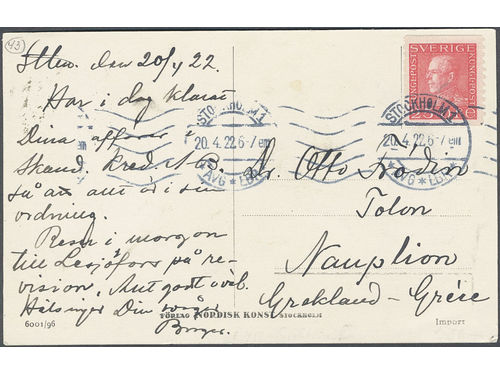 43
Sthlm. den 20/4 22.
Har i dag klarat
Dina affärer i
Skand. Kred. A.B.
så att allt är i sin
ordning.
Reser i morgon
till Lesjöfors på re-
vision. Allt godt o. väl.
Hälsingar Din
Birger.
Hr Otto Nodin
Tolon
Nauplion
Grekland - Grèce
SVERIGE
KUNGSPOST
KUNGSPOST
STOCKHOLM 1
20.4.22 6-7 em
AVG
LBR
STOCKHOLM 1
20.4.22 6-7 em
AVG
LBR
6001/96
FÖRLAG NORDISK KONST STOCKHOLM
Import